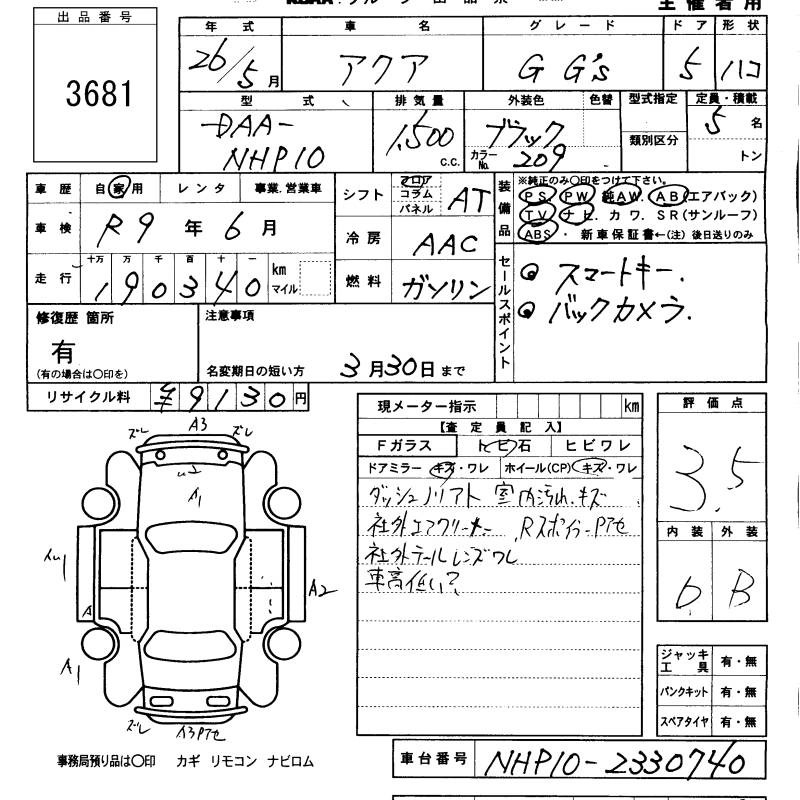 主催者用
出品番号
3681
年式 車名 グレード ドア 形状
26/5月 アクア G G's 5 ハコ
型式 排気量 外装色 色替 型式指定 定員・積載
DAA-NHP10 1,500 c.c. ブラック カラーNo. 209 類別区分 5名 トン
車歴 自家用 レンタ 事業.営業車
車検 R9年6月
走行 十万 万 千 百 十 一 190340 km マイル
シフト フロア コラム パネル AT
冷房 AAC
燃料 ガソリン
装備品 ※純正のみ○印をつけて下さい。
PS. PW. 純AW. AB(エアバック)
TV. ナビ. カワ. SR(サンルーフ)
ABS ・ 新車保証書←(注) 後日送りのみ
セールスポイント
スマートキー.
バックカメラ.
修復歴 箇所
有
(有の場合は○印を)
注意事項
名変期日の短い方 3月30日まで
リサイクル料 ¥9130円
現メーター指示 km
【査定員記入】
Fガラス トビ石 ヒビワレ
ドアミラー キズ・ワレ ホイール(CP) キズ・ワレ
ダッシュノリアト 室内汚れ.キズ
社外エアクリーナー Rスポイラー Pアセ
社外テールレンズワレ
車高低い?
評価点
3.5
内装 外装
D B
ズレ A3 ズレ
A1
A
A2
A1
ズレ A3Pアセ
ジャッキ工具 有・無
パンクキット 有・無
スペアタイヤ 有・無
事務局預り品は○印 カギ リモコン ナビロム
車台番号 NHP10-2330740